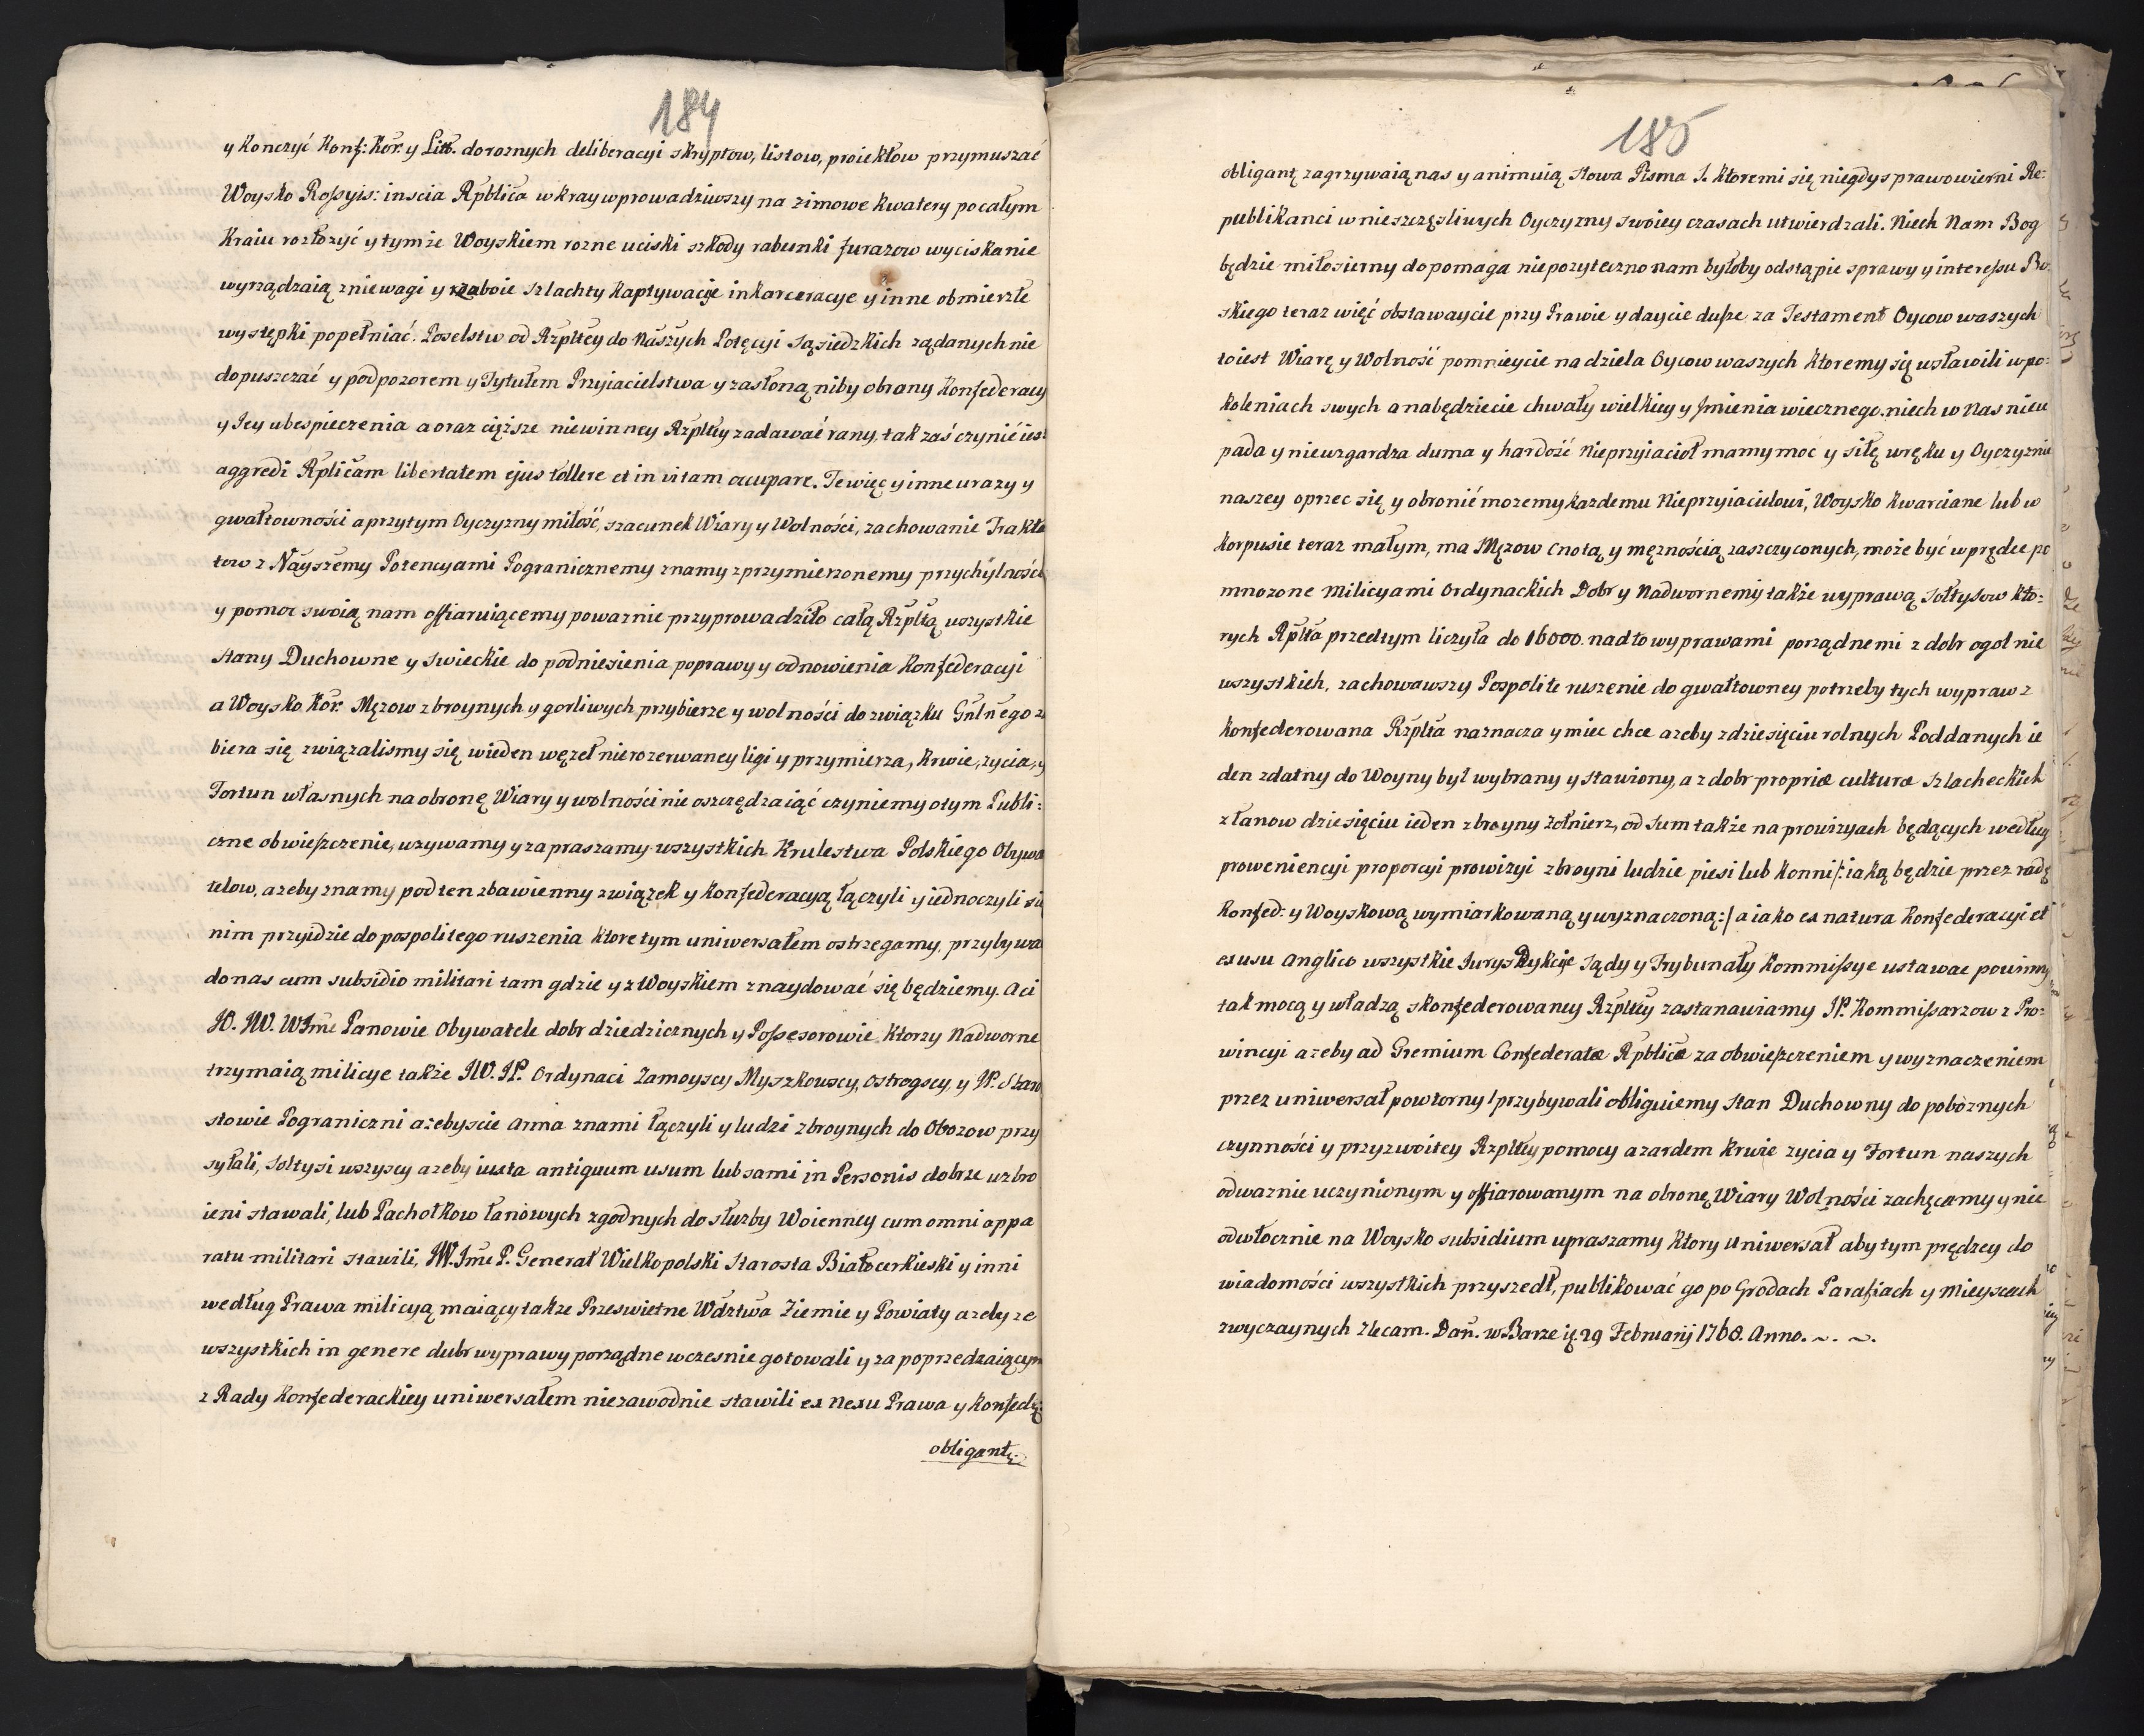 184
y konczyć Konf: Kor: y Litt. doroznych deliberacyi skryptow, listow, proiektow przymuszać
Woysko Roſsyis: inscia Rp̃blica w kray wprowadziwszy na zimowe kwatery pocałym
kraiu rozłozyć y tymże Woyskiem rozne uciski szkody rabunki furazow wyciskanie
wyrządzaią zniewagi y zaboie Szlachty kaptywacije inkarceracye y inne obmierzłe
występki popełniać. Poselstw od Rzpltey do Naszych Potęcyi Sąsiedzkich ządanych nie
dopuszczać y pod pozorem y Tytułem Przyiacielstwa y zasłoną niby obrany Konfederacy
y Iey ubespieczenia a oraz cięższe niewinney Rzpltey zadawać rany, tak zaś czynić iest
aggredi Rp̃licam libertatem ejus tollere et in vitam occupare. Te więc y inne urazy y
gwałtowności a przytym Oyczyzny miłość, szacunek Wiary y Wolności, zachowanie Trakta
tow z Nayszemy Potencyami Pogranicznemy znamy zprzymierzonemy przychylności
y pomoc swoią nam offiaruiącemy powaznie przyprowadziło całą Rzpltą wszystkie
stany Duchowne y swieckie do podniesienia poprawy y odnowienia Konfederacyi
a Woysko Kor: Męzow zbroynych y gorliwych przybierze y wolności do związku Gnlnego za
biera się związalismy się wieden węzeł nierozerwaney ligi y przymierza, krwie, zycia, y
Fortun własnych na obronę Wiary y wolności nie oszczędzaiąć czyniemy otym Publi:
czne obwieſzczenie, wzywamy y zapraszamy wszystkich Krulestwa Polskiego Obywa
telow, azeby znamy pod ten zbawienny związek y Konfederacyą łączyli y iednoczyli się
nim przyidzie do pospolitego ruszenia ktore tym uniwersałem ostrzegamy, przybywa
do nas cum subsidio militari tam gdzie y z Woyskiem znaydować się będziemy. A ci
JO. JW. WJme Panowie Obywatele dobr dziedzicznych y Poſsesorowie ktorzy Nadworne
trzymaią milicye także JW. JP. Ordynaci Zamoyscy Myszkowscy, Ostrogscy, y JP. Staro
stowie Pograniczni ażebyscie arma znami łączyli y ludzi zbroynych do Obozow przy
syłali, Sołtysi wszyscy azeby iuxta antiquum usum lub sami in Personis dobrze uzbro
ieni stawali, lub Pachołkow łanowych zgodnych do słuzby Woienney cum omni appa
ratu militari stawili, JW. Jme P. Generał Wielkopolski Starosta Białocerkieski y inni
według Prawa milicyą maiący takze Przeswietne Wdztwa Ziemie y Powiaty azeby ze
wszystkich in genere dubr wyprawy porządne wczesnie gotowali y za poprzedzaiącym
z Rady Konfederackiey uniwersałem niezawodnie stawili ex nexu Prawa y Konfedę:
obligantę
185
obligantę zagrzywaią nas y animuią słowa Pisma S. ktoremi się niegdys prawowierni Re:
publikanci w nieszczęsliwych Oyczyzny swoiey czasach utwierdzali. Niech Nam Bog
będzie miłosierny dopomaga niepozyteczno nam byłoby odstąpie sprawy y intereſsu Bo:
skiego teraz więć obstawaycie przy Prawie y daycie duſze za Testament Oycow waszych
to iest Wiarę y Wolność pomnieycie na dziela Oycow waszych ktoremy się wsławili w po:
koleniach swych a nabędziecie chwały wielkiey y Jmienia wiecznego. niech w Nas nieu
pada y niewzgardza duma y hardość Nieprzyiacioł mamy moc y siłę w ręku y Oyczyznie
naszey oprzec się y obronić mozemy kazdemu Nieprzyiacielowi, Woysko kwarciane lub w
korpusie teraz małym, ma Męzow cnotą y męznością zaszczyconych, może być wprędce po
mnozone milicyami Ordynackich Dobr y Nadwornemi także wyprawą Sołtysow kto:
rych Rp̃lta przedtym liczyła do 16000. nadto wyprawami porządnemi z dobr ogolnie
wszystkich, zachowawszy Pospolite ruszenie do gwałtowney potrzeby tych wypraw z
konfederowana Rzplta naznacza y miec chce azeby zdziesięciu rolnych Poddanych ie
den zdatny do Woyny był wybrany y stawiony, a z dobr propriæ culturæ Szlacheckich
z łanow dziesięciu ieden zbroyny zołnierz, od sum także na prowizyach będących według
proweniencyi proporcyi prowizyi zbroyni ludzie piesi lub konni /: iaką będzie przez radę
Konfed: y Woyskową wymiarkowaną y wyznaczoną :/ a iako ex natura Konfederacyi et
ex usu anglico wszystkie Jurysdykcije Sądy y Trybunały kommiſsye ustawac powinny
tak mocą y władzą skonfederowaney Rzpltey zastanawiamy JP. Kommiſsarzow z Pro:
wincyi azeby ad Gremium Confederatæ Rp̃blicæ za obwieſzczeniem y wyznaczeniem
przez uniwersał powtorny przybywali obliguiemy Stan Duchowny do poboznych
czynności y przyzwoitey Rzpltey pomocy azardem krwie zycia y Fortun naszych
odwaznie uczynionym y offiarowanym na obronę Wiary Wolności zachęcamy y nie
odwłocznie na Woysko subsidium upraszamy ktory Uniwersał aby tym prędzey do
wiadomości wszystkich przyszedł, publikować go po Grodach Parafiach y Mieyscach
zwyczaynych Zlecam. Dan. w Barze ię. 29 Februarij 1768. Anno. ~. ~.